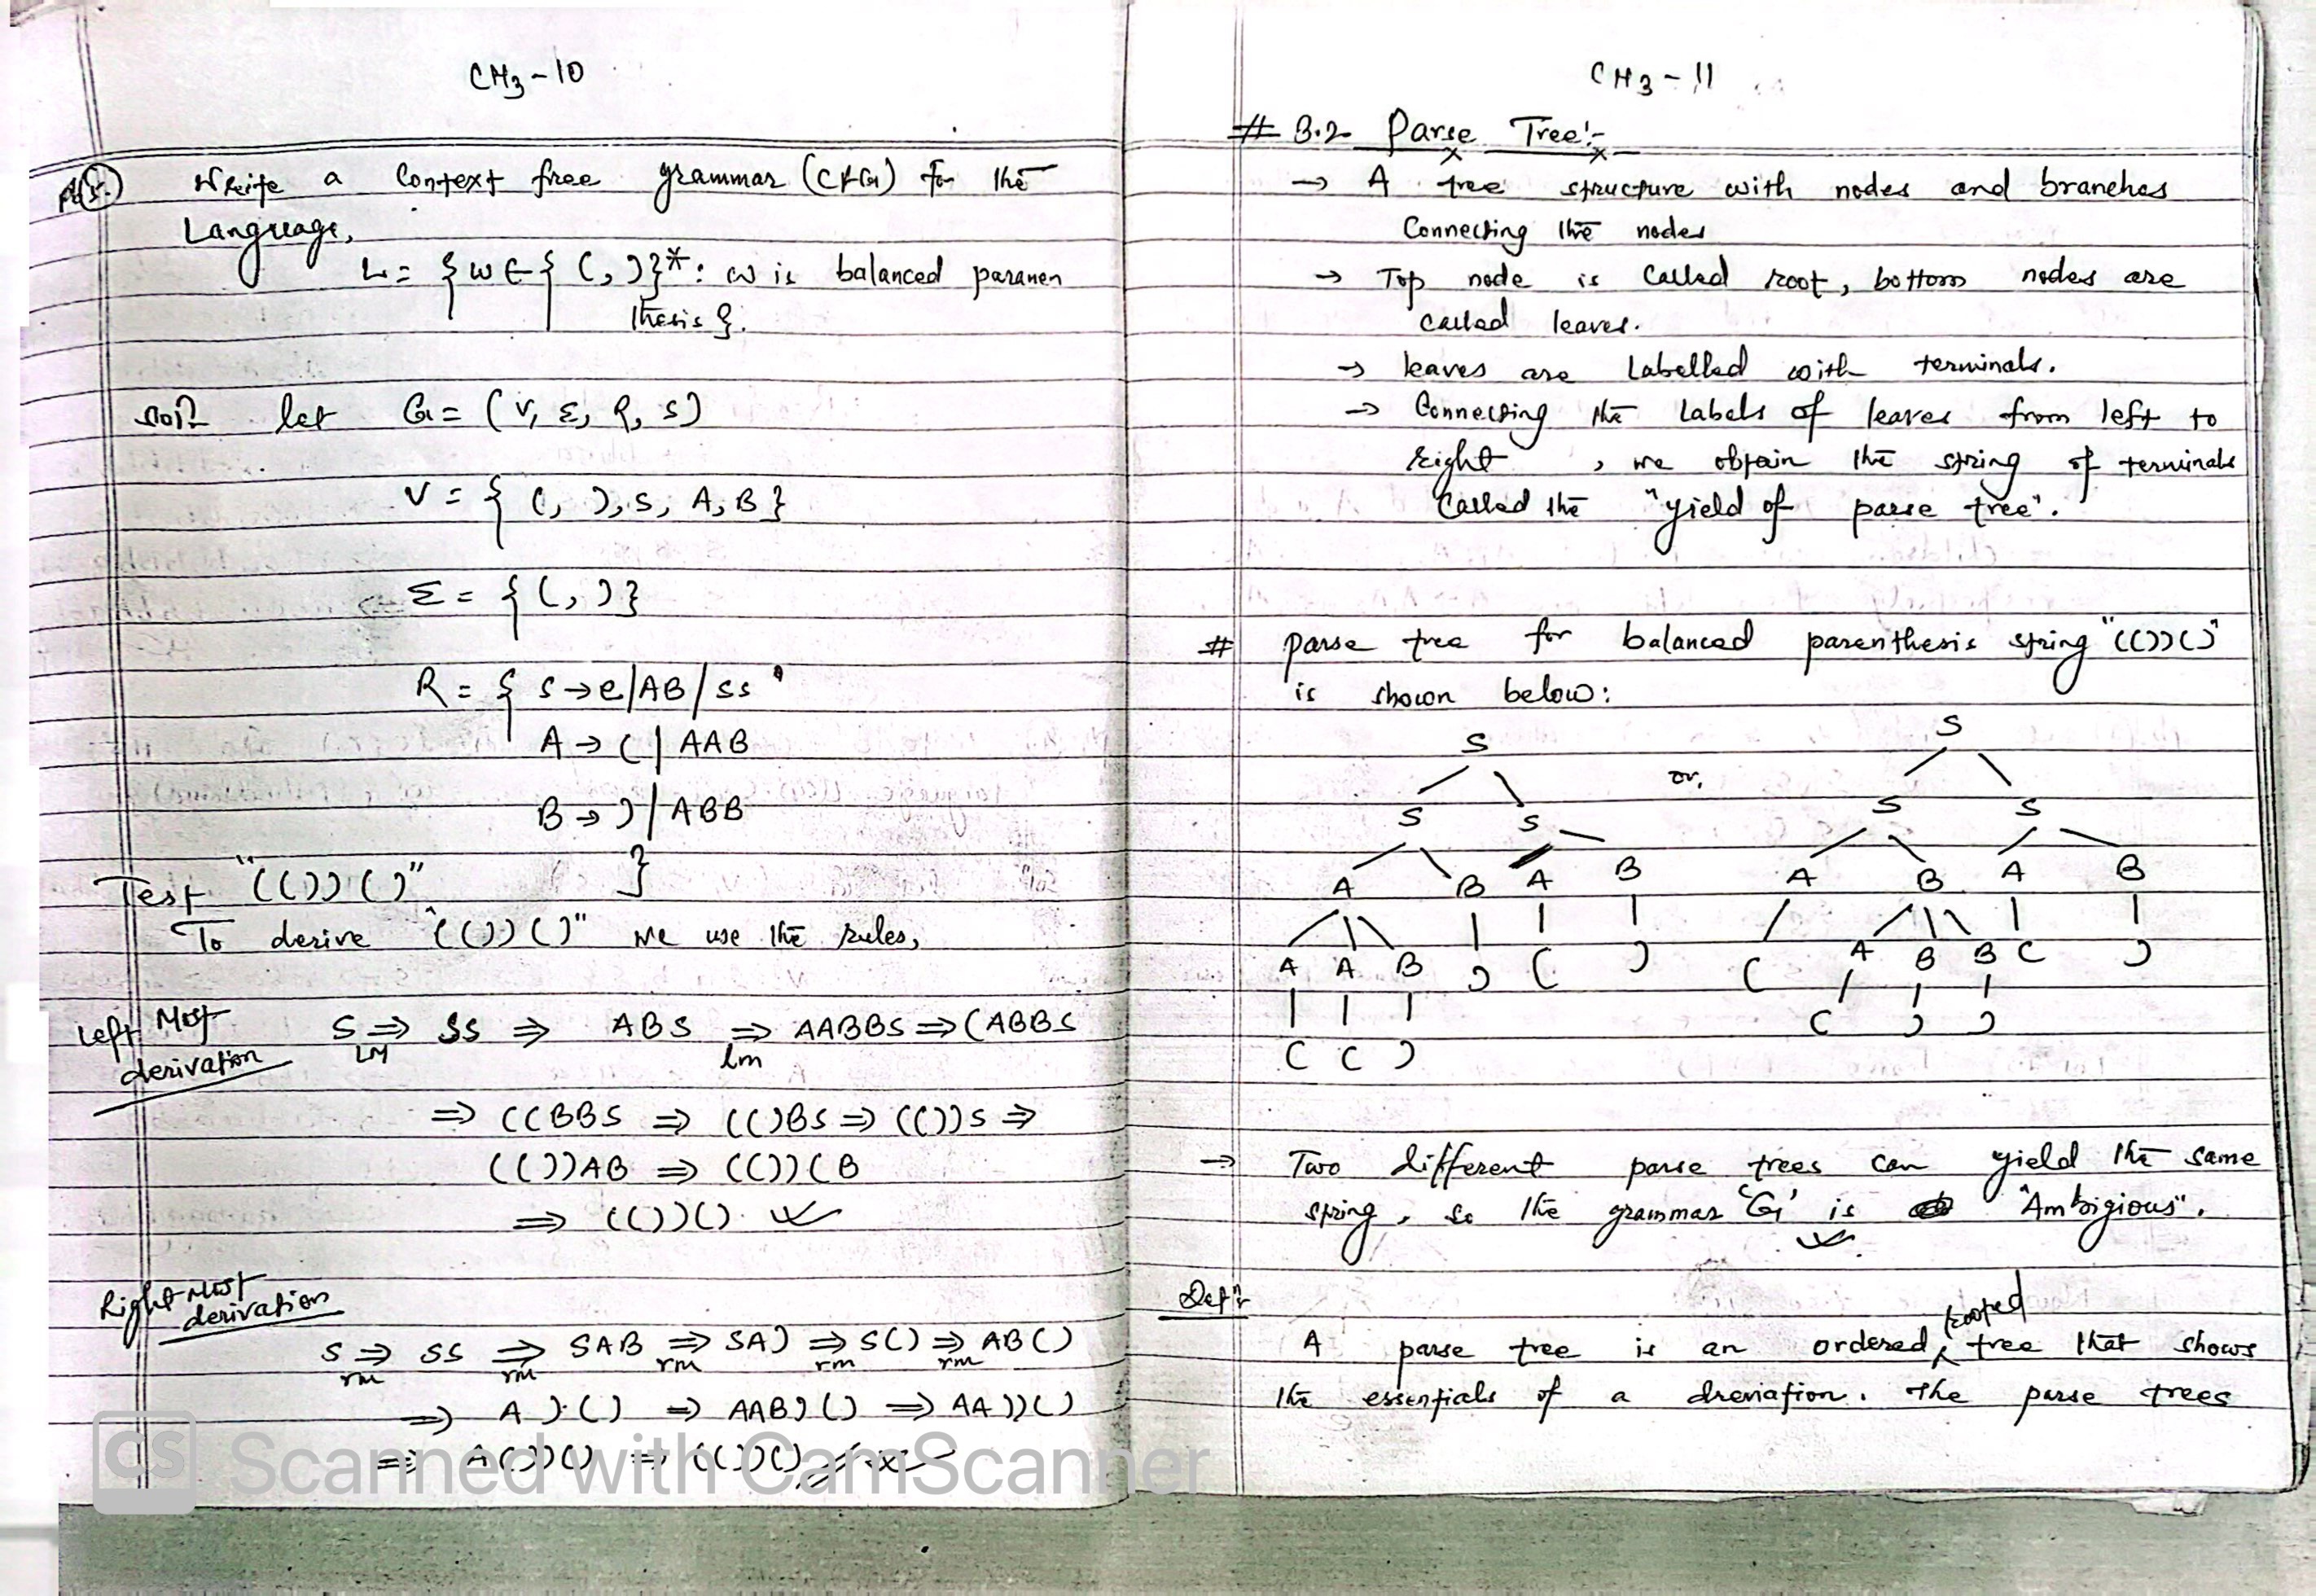 CH3-10
Write a Context free grammar (CFG) for the
Language,
L = {w ∈ { (, )}* : w is balanced paranen
thesis }.
soln let G = (V, Σ, R, S)
V = { (, ), S, A, B }
Σ = { (, ) }
R = { S → e/AB/SS
A → ( | AAB
B → ) / ABB
}
Test "(())()"
To derive "(())()" we use the rules,
Left Most
derivation
S ⇒ SS ⇒ ABS ⇒ AABBS ⇒ (ABBS
LM lm
⇒ ((BBS ⇒ (()BS ⇒ (())S ⇒
(())AB ⇒ (())(B
⇒ (())()
Right Most
derivation
S ⇒ SS ⇒ SAB ⇒ SA) ⇒ S() ⇒ AB()
rm rm rm rm rm
⇒ A)() ⇒ AAB)() ⇒ AA))()
⇒ A())() ⇒ (())()
CS Scanned with CamScanner
CH3-11
# 3.2 Parse Tree:-
→ A tree structure with nodes and branches
Connecting the nodes
→ Top node is Called root, bottom nodes are
called leaves.
→ leaves are Labelled with terminals.
→ Connecting the Labels of leaves from left to
right , we obtain the string of terminals
Called the "yield of parse tree".
# parse tree for balanced parenthesis string "(())()"
is shown below:
S or, S
S S S S
A B A B A B A B
A A B ) ( ) ( A B B ( )
( ( ) ( ) )
→ Two different parse trees can yield the same
string, so the grammar 'G' is "Ambigious".
Defn
A parse tree is an ordered rooted tree that shows
the essentials of a dreviation. The parse trees